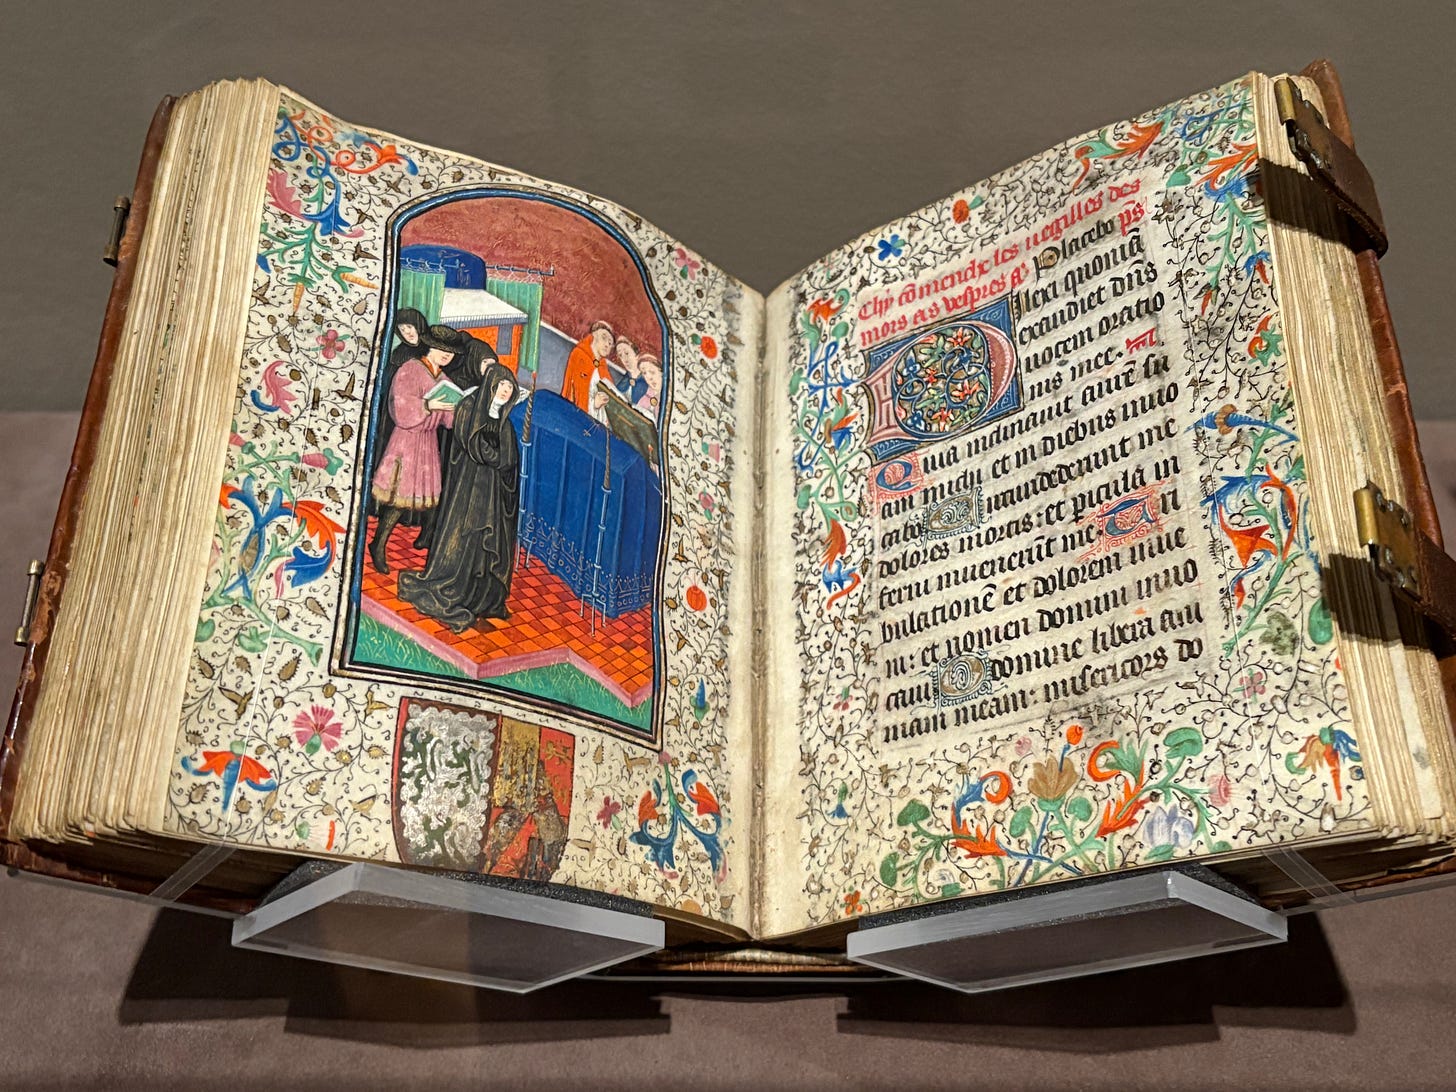 Chy cōmenche les uegilles des
mors et as vespres āt Placebo p̄s
Dilexi quoniā
exaudiet dn̄s
uocem oratio
nis mee.
Quia inclinauit aurē su
am michi et in diebus inuo
cabo Circundederunt me
dolores mortis: et picula in
ferni inuenerūt me. Tri
bulationē et dolorem inue
ni: et nomen domini inuo
caui O domine libera ani
mam meam: misericors do